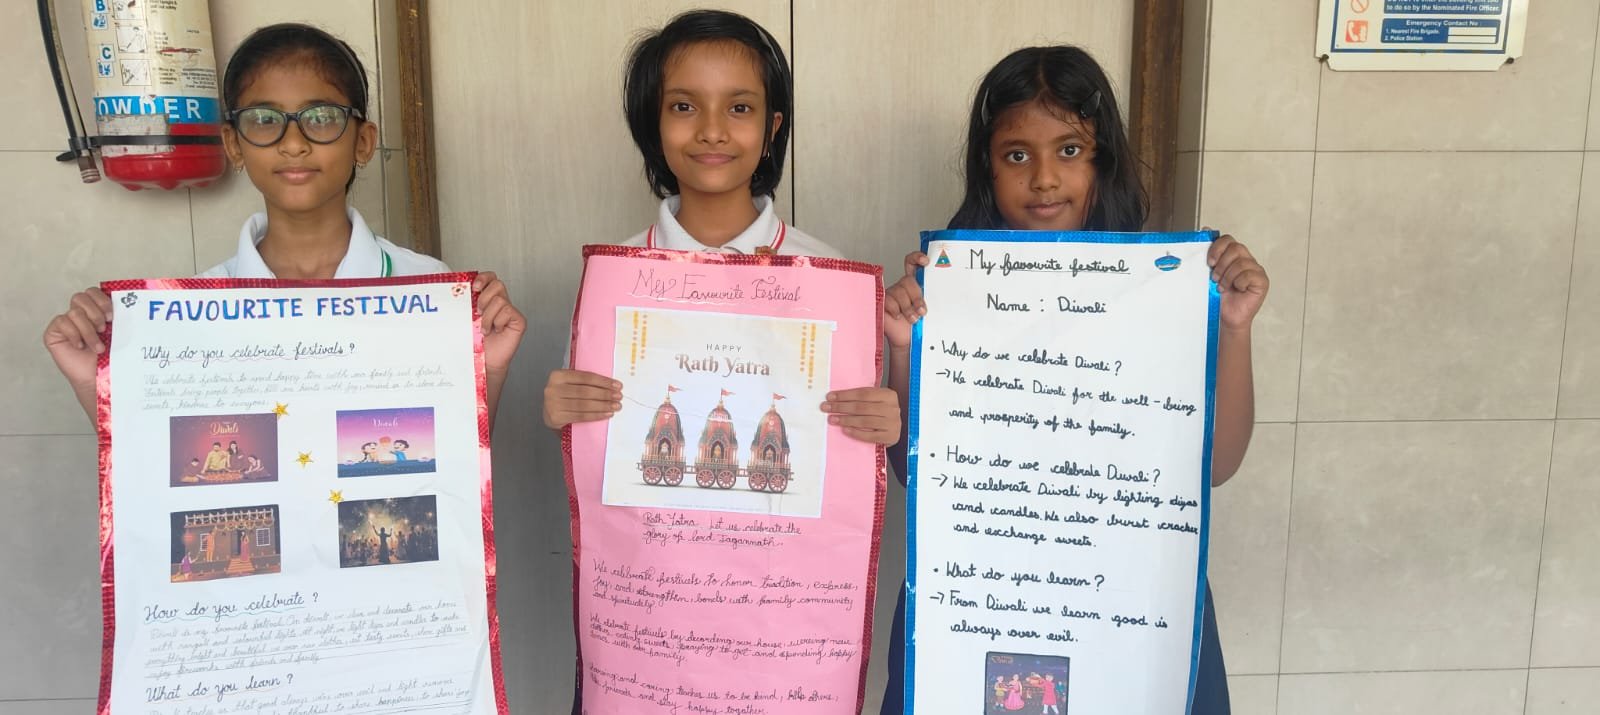 B
C
POWDER
to do so by the Nominated Fire Officer.
Emergency Contact No :
1. Nearest Fire Brigade.
2. Police Station
FAVOURITE FESTIVAL
Why do you celebrate festivals?
We celebrate festivals to spend happy time with our family and friends.
Festivals bring people together, fill our hearts with joy, remind us to share
sweets, kindness to everyone.
Diwali
Diwali
How do you celebrate?
Diwali is my favourite festival. On diwali we clean and decorate our home
with rangoli and colourful lights. At night, we light diyas and candles to make
everything bright and beautiful. we wear new clothes, eat tasty sweets, share gifts and
enjoy fireworks with friends and family
What do you learn?
teaches us that good always wins over evil and light removes
thankful, to share happiness
My Favourite Festival
HAPPY
Rath Yatra
Rath Yatra. Let us celebrate the
glory of lord Jagannath.
We celebrate festivals to honor tradition, express,
joy, and strengthen, bonds with family community
and spirituality
We celebrate festivals by decording our house, wereing new
clothes, eating sweets, praying to got and spending happy
times with our family.
sharing and caring teaches us to be kind, help others,
like friends and stay happy together.
My favourite festival
Name : Diwali
• Why do we celebrate Diwali?
→ We celebrate Diwali for the well-being
and prosperity of the family.
• How do we celebrate Diwali?
→ We celebrate Diwali by lighting diyas
and candles. We also burst cracker
and exchange sweets.
• What do you learn?
→ From Diwali we learn good is
always over evil.